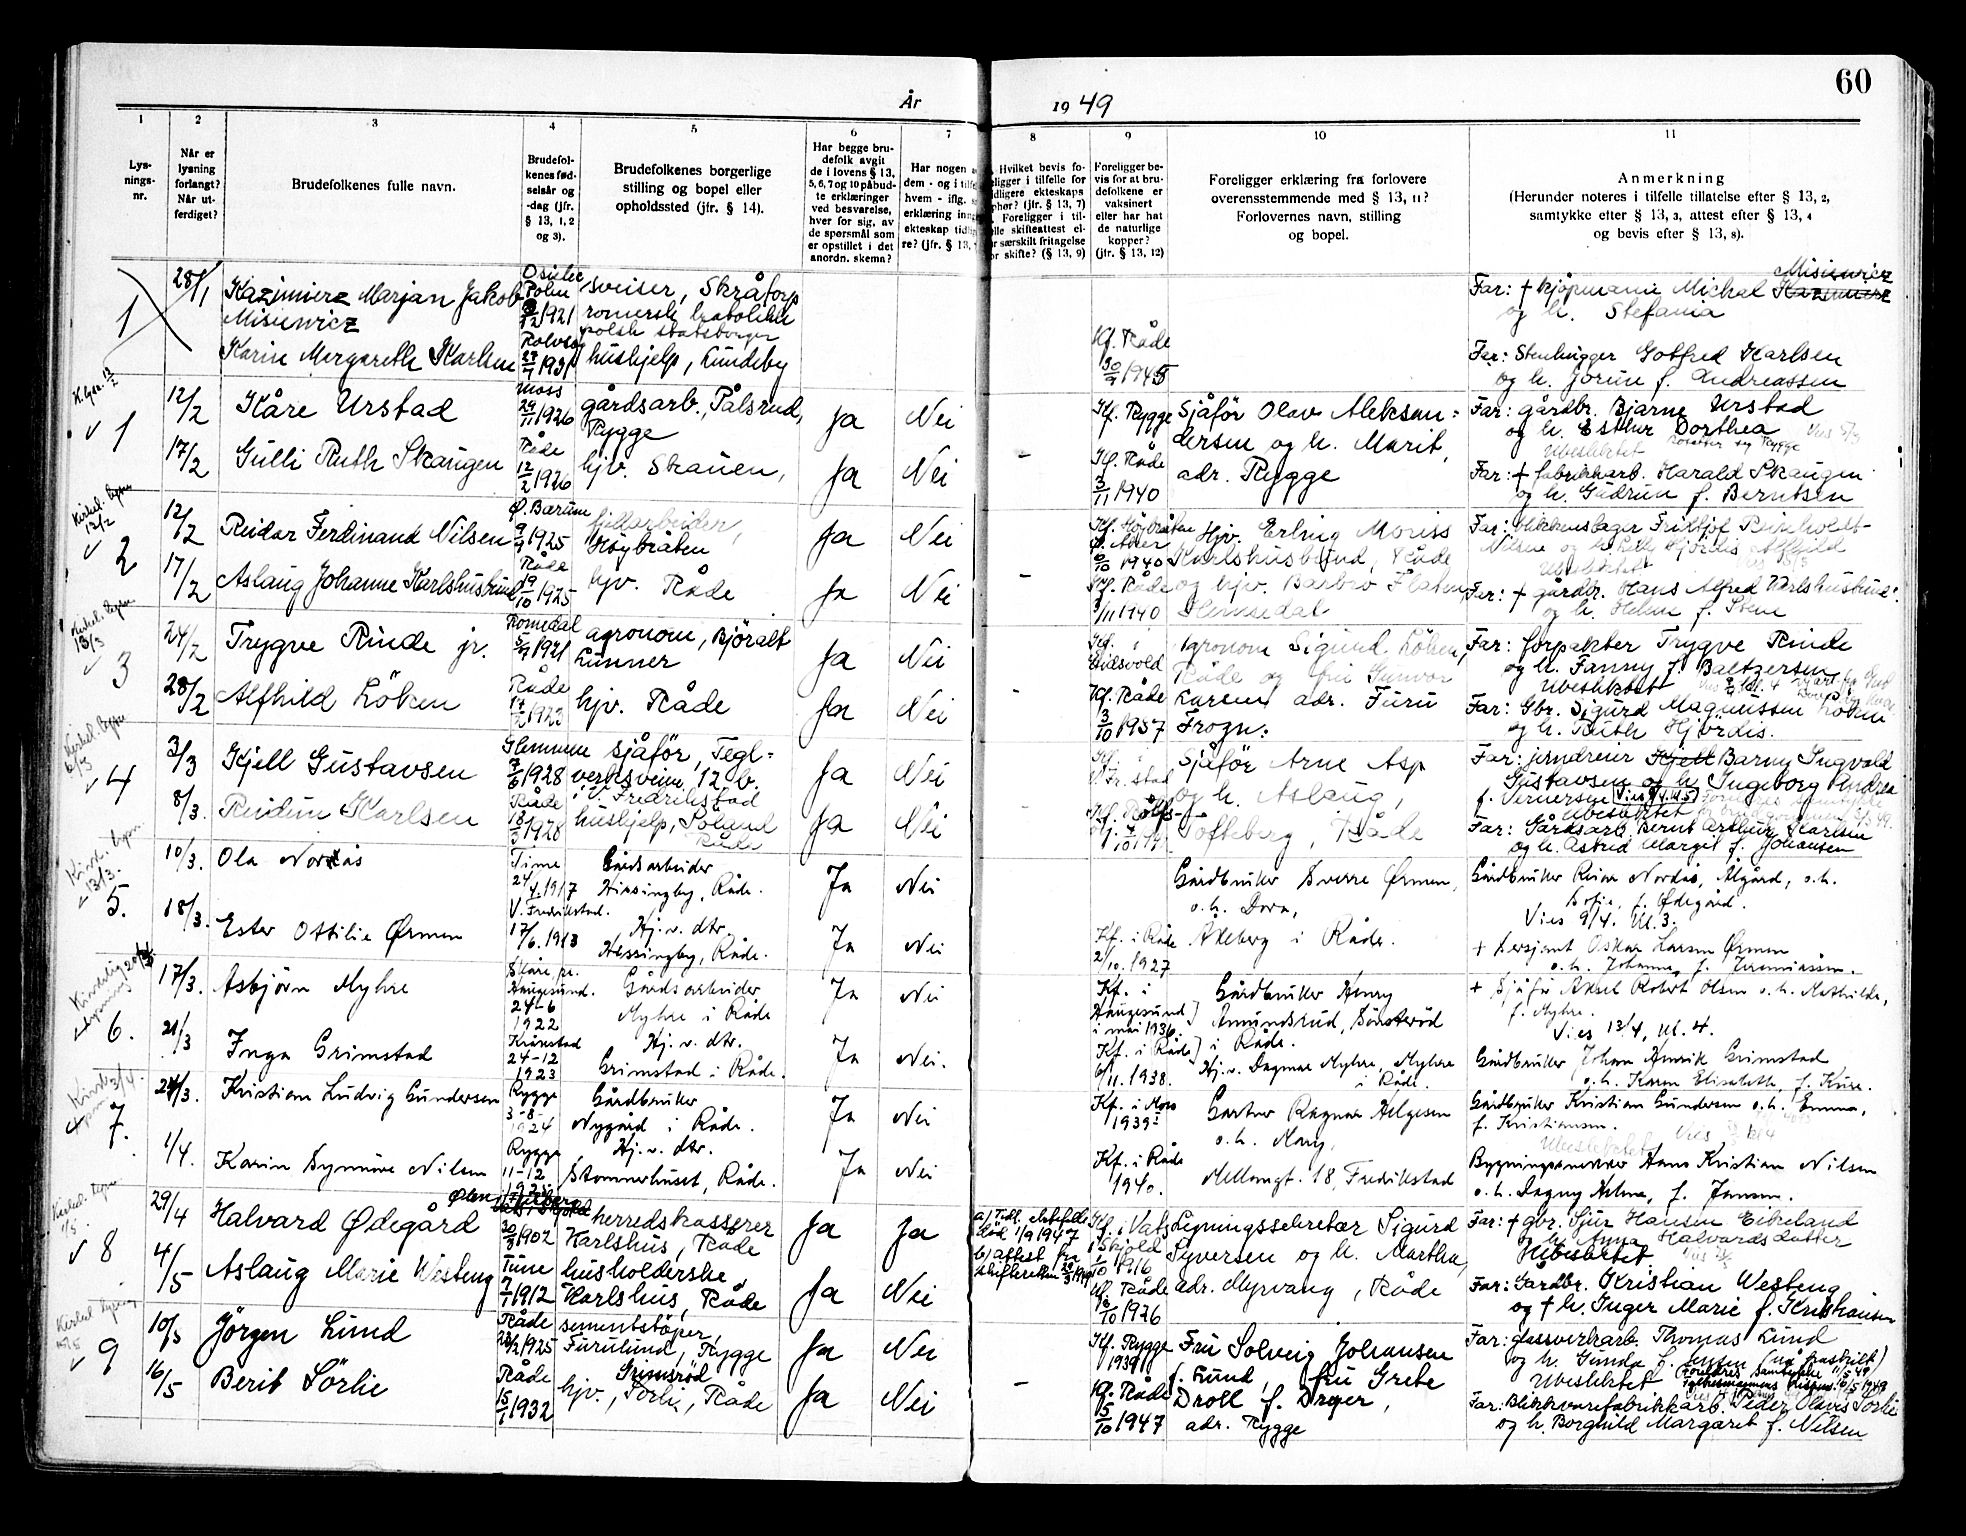 60
År 1949
1 2 3 4 5 6 7 8 9 10 11
Lys-
nings-
nr.
Når er
lysning
forlangt?
Når ut-
ferdiget?
Brudefolkenes fulle navn.
Brudefol-
kenes fød-
selsår og
-dag (jfr.
§ 13, 1, 2
og 3).
Brudefolkenes borgerlige
stilling og bopel eller
opholdssted (jfr. § 14).
Har begge bru-
defolk avgit
de i lovens § 13,
5, 6, 7 og 10 påbud-
te erklæringer
ved besvarelse,
hver for sig, av
de spørsmål som
er opstillet i det
anordn. skema?
Har nogen
dem - og i
hvem - iflg.
erklæring
ekteskap
re? (jfr. § 13,
Hvilket bevis fo-
religger i tilfelle for
tidligere ekteskaps
ophør? (jfr. § 13, 7)
Foreligger i til-
felle skifteattest el-
ler særskilt fritagelse
for skifte? (§ 13, 9)
Foreligger be-
vis for at bru-
defolkene er
vaksinert
eller har hat
de naturlige
kopper?
(jfr. § 13, 12)
Foreligger erklæring fra forlovere
overensstemmende med § 13, 11?
Forlovernes navn, stilling
og bopel.
Anmerkning
(Herunder noteres i tilfelle tillatelse efter § 13, 2,
samtykke efter § 13, 3, attest efter § 13, 4
og bevis efter § 13, 8).
1
28/1
Kazimierz Marjan Jakob
Misiewicz
Polen
1921
sveiser, Skråtorp
romersk katolikk
polsk statsborger
Far: + kjøpmann Michal Kazimierz Misiewicz
og h. Stefania
Karin Margareth Karlsen
1931
hushjelp, Lundeby
Kf. Råde
30/9 1945
Far: Stenhugger Gotfred Karlsen
og h. Jorun f. Andreassen
1
12/2
Kåre Urstad
Moss
29/11 1926
gårdsarb., Pålsrud,
Rygge
Ja Nei
Kf. Rygge
Sjåfør Olav Aleksan-
dersen og h. Marit,
adr. Rygge
Far: gårdbr. Bjarne Urstad
og h. Esther Dorthea
Ubeslektet
17/2
Gulli Ruth Skaugen
Råde
12/2 1926
hjv. Strauen,
Ja Nei
-
Kf. Råde
3/11 1940
Far: + fabrikkarb. Harald Skaugen
og h. Gudrun f. Berntsen
Kirkel. lysn.
12/2
2
12/2
Reidar Ferdinand Nilsen
Ø. Bærum
1925
Høybråten
Ja Nei
Hjv. Erling Moriss
Karlshusbund, Råde
og hjv. Barbro Flaten,
Hemsedal
Far: blikkenslager Fritjof Reinholdt
17/2
Aslaug Johanne Karlshusbund
Råde
19/10 1925
hjv. Råde
Ja Nei
-
Kf. Råde
3/11 1940
Far: + gårdbr. Hans Alfred Karlshusbund
og h. Helene f. Stene
Kirkel. lysn.
13/3
3
24/2
Trygve Rinde jr.
Romedal
1921
agronom, Björalt
Lunner
Ja Nei
Kf. i
Eidsvold
Agronom Sigurd Löken,
Råde og fru Gunvor
Larsen adr. Furu
Frogn.
Far: forpakter Trygve Rinde
og h. Fanny f. Baltzersen
Ubeslektet
28/2
Alfhild Löken
Råde
1923
hjv. Råde
Ja Nei
-
Kf. Råde
3/10 1937
Far: Gbr. Sigurd Magnussen Löken
og h. Ruth Hjördis.
Kirkel. lysn.
6/3
4
3/3
Kjell Gustavsen
Glemmen
7/6 1928
sjåför, Tegl-
verksveien 12 b.
i V. Fredrikstad
Ja Nei
Sjåför Arne Asp
og h. Aslaug,
Tofteberg, Råde
Far: jerndreier Kjell Barny Ingvald
Gustavsen og h. Ingeborg Andrea
f. Vernersen
Ubeslektet
8/3.
Reidun Karlsen
Råde
1928
hushjelp, Soland
Råde
Ja Nei
Far: Gårdsarb. Bernt Arthur Karlsen
og h. Astrid Margit f. Johansen
Kirk. lysn.
13/3.
5.
10/3.
Ola Nordås
Time
24/4.1917
Gårdsarbeider
Hissingby, Råde.
Ja Nei
Gårdbruker Sverre Ørmen,
o.h. Dora,
Akeberg i Råde.
Gårdbruker Reiar Nordås, Ålgård, o.h.
Sofie, f. Ødegård.
Vies 9/4. kl. 3.
18/3.
Ester Ottilie Ørmen
V. Fredrikstad.
17/6.1913
Hj. v. dtr.
Hissingby, Råde.
Ja Nei
Kf. i Råde
2/10.1927
+ Sersjant Oskar Larsen Ørmen
o.h. Johanne, f. Jeremiassen.
6.
17/3.
Asbjørn Myhre
Skåre pr.
Haugesund.
24-6
1922
Gårdsarbeider
Myhre i Råde
Ja Nei
Kf. i
Haugesund
i mai 1936.
Gårdbruker Henry
Amundsrud, Sønsterød
i Råde.
+ Sjåfør Aksel Robert Olsen o.h. Mathilde,
f. Myhre.
Vies 13/4, kl. 4.
21/3
Inga Grimstad
24-12
1923
Hj. v. dtr.
Grimstad i Råde.
Ja Nei.
Kf. i Råde
6/11.1938.
Hj.v. Dagmar Myhre, Myhre
i Råde.
Gårdbruker Johan Henrik Grimstad
o.h. Karen Elisabeth, f. Kure.
7.
24/3.
Kristian Ludvig Gundersen
Rygge
3-8-
1924
Gårdbruker
Nygård i Råde.
Ja Nei
Kf. i Moss
1939
Gartner Ragnar Helgesen
o.h. Mary,
Mellomgt. 18, Fredrikstad
Gårdbruker Kristian Gundersen o.h. Emma,
f. Kristiansen.
1/4.
Karin Synnøve Nilsen
Rygge
11-12
Hj. v. dtr.
Stommerhuset, Råde.
Ja Nei
Kf. i Råde
1940.
Bygningssnekker Hans Kristian Nilsen
o.h. Dagny Helene, f. Jensen.
Kirkel. lysn.
1/5.
8
29/4
Halvard Ødegård
Ølen
1902
herredskasserer
Karlshus, Råde
Ja Ja
a) Tidl. ektefelle
död 1/9 1947
b) attest fra
skifteretten
Kf. i Vats
i Skjold
1/10 1916
Ligningssekretær Sigurd
Syversen og h. Martha,
adr. Myrvang, Råde
Far: + gbr. Sjur Hansen Eikeland
og h. Anna Halvardsdatter
Ubeslektet
4/5
Aslaug Marie Westeng
Tune
7/1 1912
husholderske,
Karlshus, Råde
Ja Nei
Kf. Råde
1926
Far: Gårdbr. Kristian Westeng
og + h. Inger Marie f. Kristiansen
Kirkel. lysning
9
10/5
Jörgen Lund
Råde
1925
sementstöper,
Furulund, Rygge
Ja Nei
Kf. Rygge
1939
Fru Solveig Johansen
f. Lund, fru Grete
Droll f. Dreyer,
adr. Rygge
Far: glassverkarb. Thomas Lund
og h. Gunda f. Jensen (nå fraskilt)
Ubeslektet
16/5
Berit Sörlie
Råde
15/1 1932
Grimsröd
hjv., Sörli, Råde
Ja Nei
-
Kf. Råde
5/10 1947
Far: Blikkvarefabrikkarb. Peder Olavis Sörlie
og h. Borghild Margaret f. Nilsen